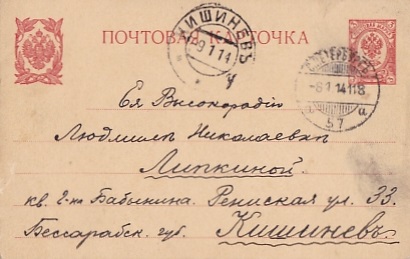 ПОЧТОВАЯ КАРТОЧКА
КИШИНЕВЪ
9 1 14
-6 1 14 11 8
57
Ея Высокородію
Людмилѣ Николаевнѣ
Липкиной
кв. Бабынина. Ренійская ул. 33.
Бессарабск. губ. Кишиневъ.